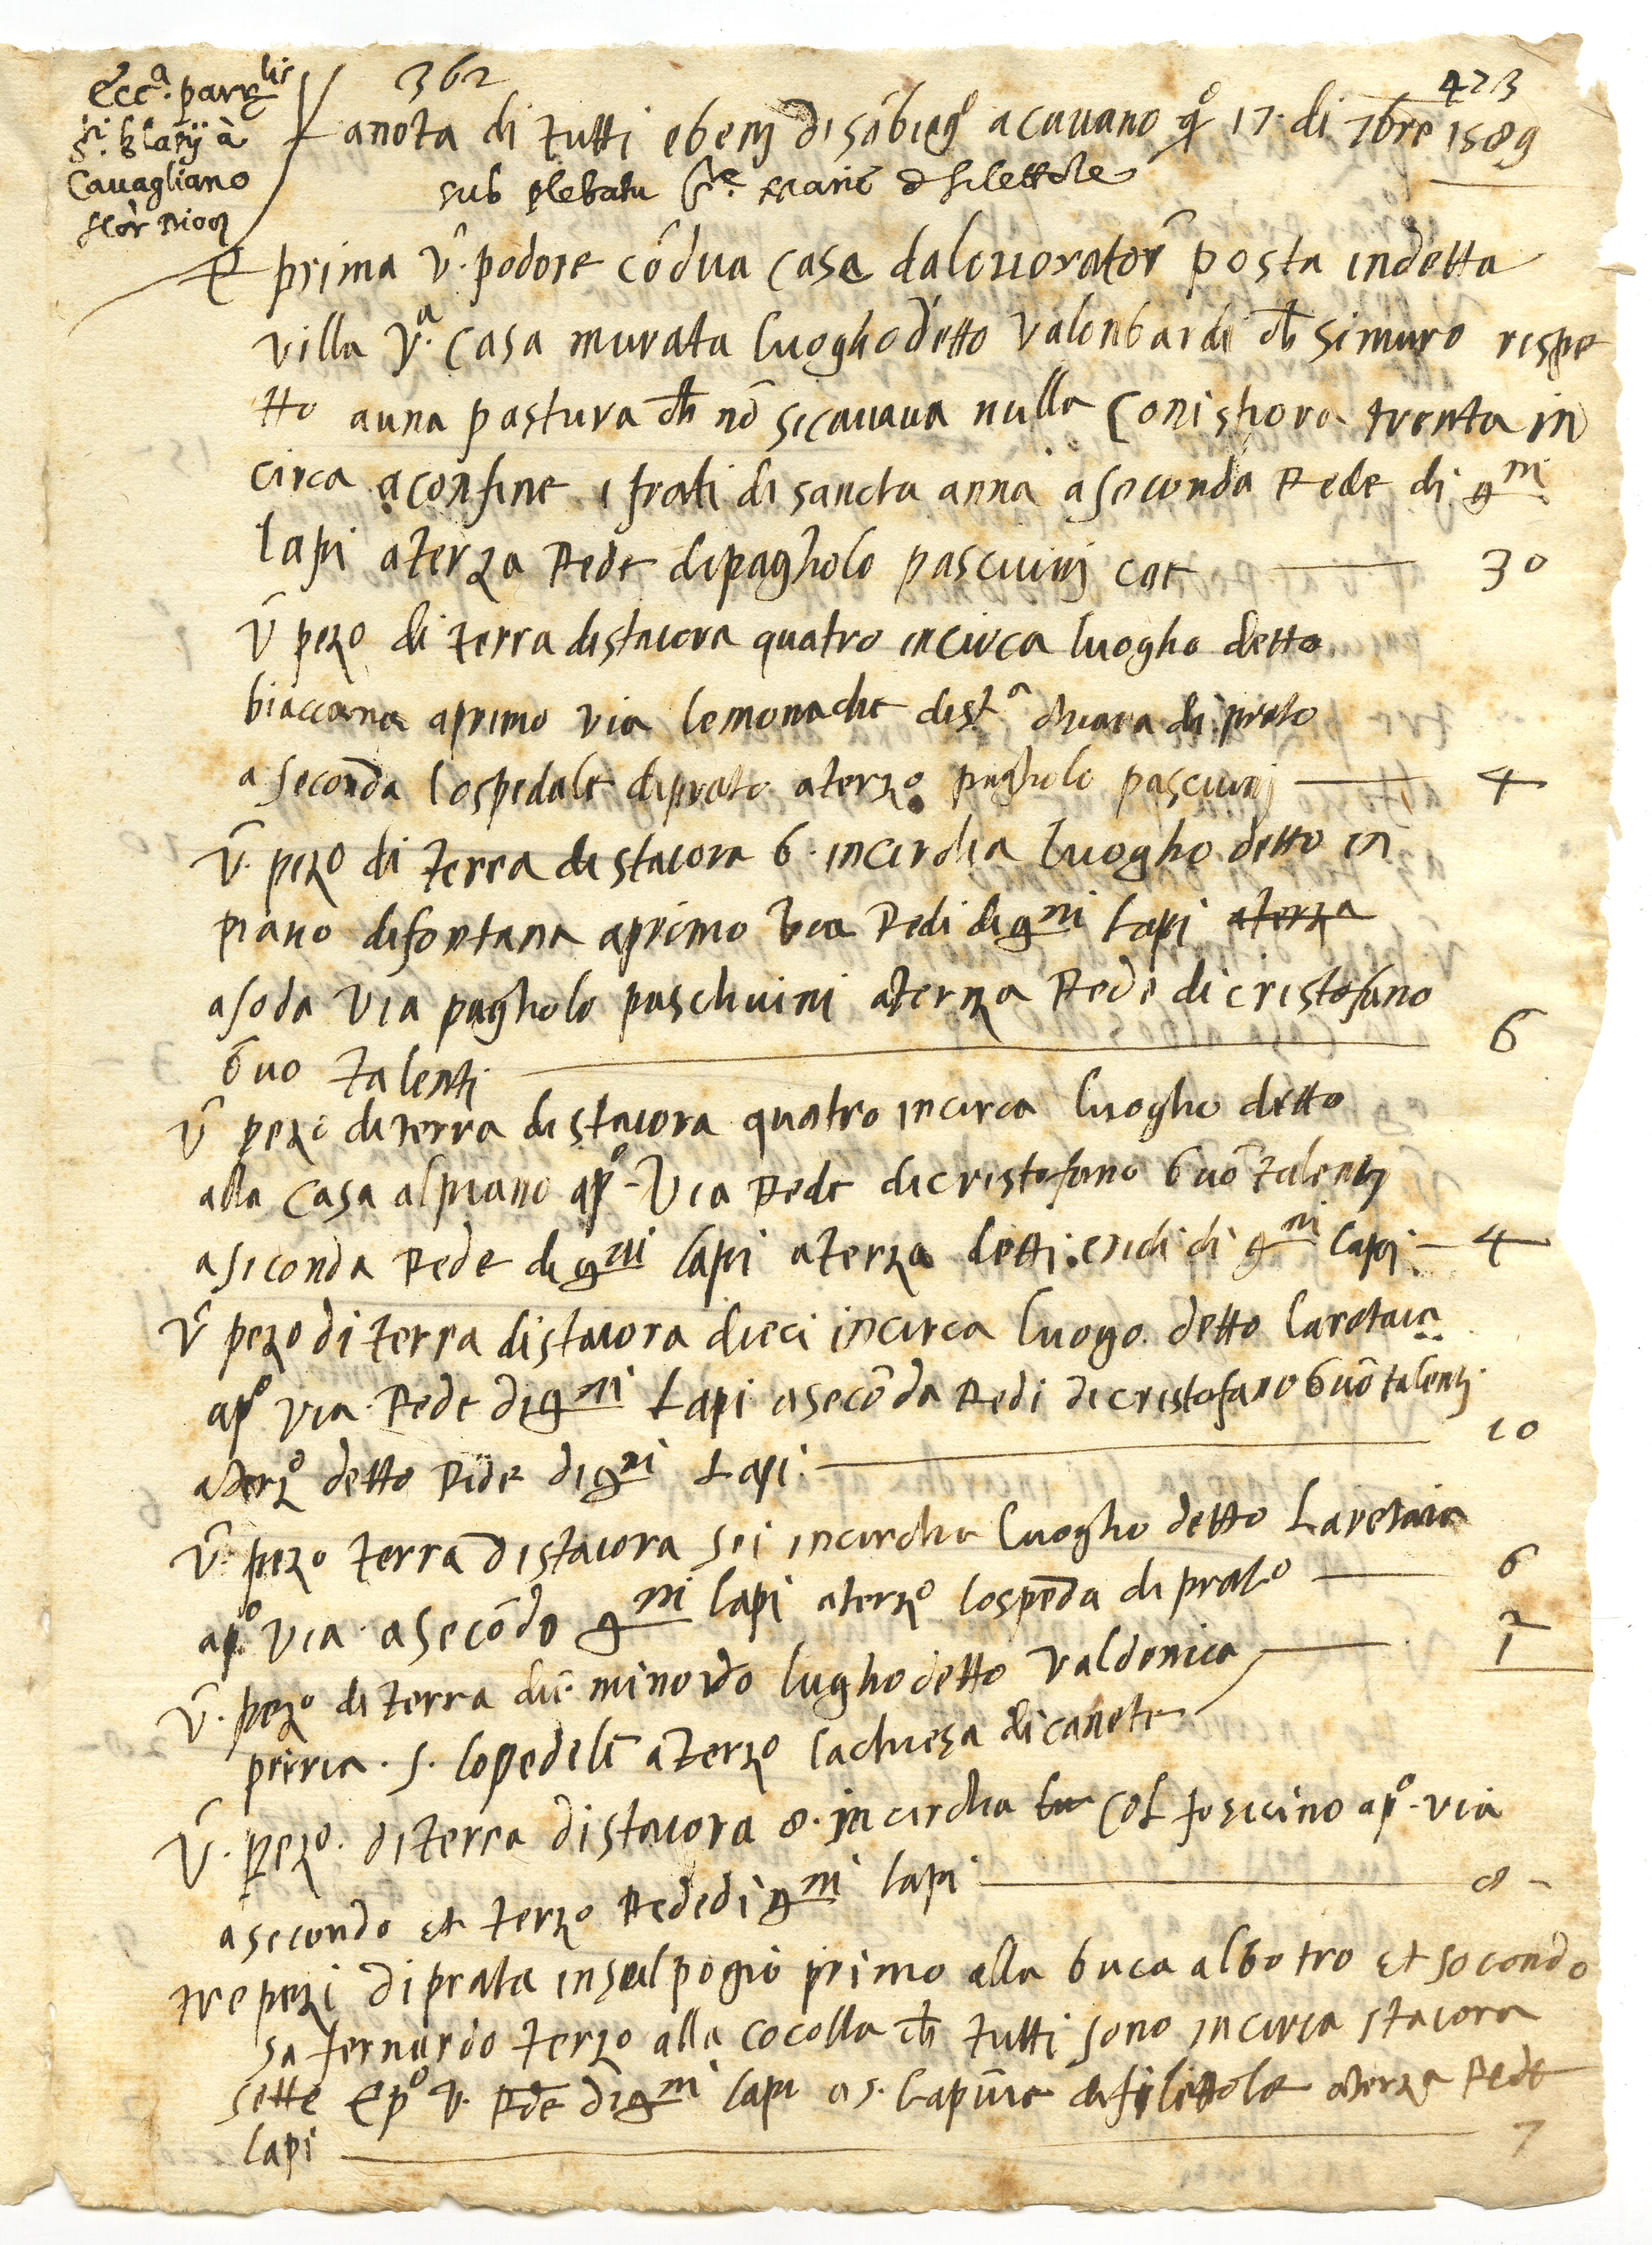 362
423
Ecc.a parr.lis
S.ti Blasij à
Cavagliano
flor Dioc
anota di tutti ebenj disãbiagº acavano qº 17. di 7bre 1589
sub plebatu S.te Marie d filettole
prima ṽ. podere cõdua casa dalavoratorĩ posta indetta
villa v.a casa murata luoghodetto valonbardi ch simuro rispe
tto auna pastura ch nõ sicavava nulla conistiora trenta in
circa aconfine i frati di sancta anna aseconda Rede di gni
lapi aterza Rede dipagholo pascuinj coe 30
ṽ pezo di terra distaiora quatro incirca luogho detto
biaccana aprimo via lemonache dist.a chiara di prato
aseconda lospedale diprato aterzo pagholo pascuinj 4
ṽ. pezo di terra distaiora 6. incircha luogho detto in
piano difontana aprimo via Redi di gni Lapi aterza
asoda via pagholo paschuini aterza Rede di cristofano
buo talenti 6
ṽ pezo diterra distaiora quatro incirca luogho detto
alla casa alpiano apº via Rede dicristofano buõtalentj
asiconda Rede di gni lapi aterza detti eridi di gni lapi 4
ṽ pezo di terra distaiora dieci incirca luogo detto laretaia
apº via Rede di gni Lapi asecõda Redi dicristofano buõtalentj
aterzº detto Rede di gni Lapi 10
ṽ. pezo terra distaiora sei incircha luogho detto Laretaia
apº via asecõdo gni lapi aterzº lospeda di prato 6
ṽ. pezo di terra die minordo lughodetto valdenica 2
1
prirvia. s. lopedale aterzo lachiesa dicanete
ṽ. pezo. diterra distaiora 8. incircha lu col fosicino apº via
asecondo et terzo Rede di gni lapi 8
tre pezi diprata insulpogio primo alla buca albotro et socondo
sa fernardo terzo alla cocolla ch tutti sono incirca staiora
sette Epº v. Rede di gni lapi as. lapiuie difilettole aterza Rede
lapi 7